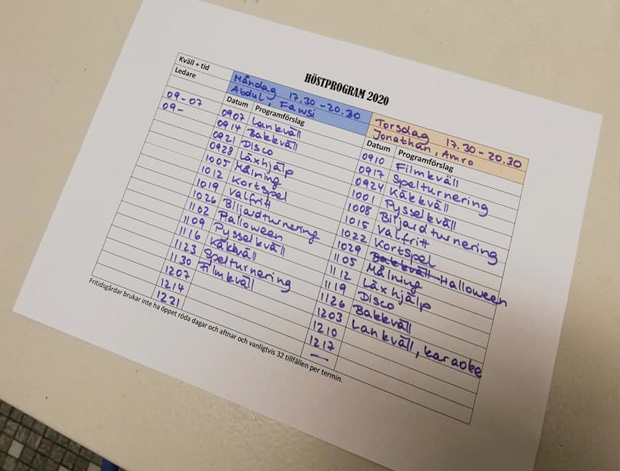 HÖSTPROGRAM 2020
Kväll + tid Måndag 17.30-20.30 Torsdag 17.30-20.30
Ledare Abdul, Fawsi Jonathan, Amro
Datum Programförslag Datum Programförslag
09-07 0907 Lankväll 0910 Filmkväll
09- 0914 Bakkväll 0917 Spelturnering
0921 Disco 0924 Käkkväll
0928 Läxhjälp 1001 Pysselkväll
1005 Målning 1008 Biljardturnering
1012 Kortspel 1015 Valfritt
1019 Valfritt 1022 Kortspel
1026 Biljardturnering 1029 Bakkväll Halloween
1102 Halloween 1105 Målning
1109 Pysselkväll 1112 Läxhjälp
1116 Käkkväll 1119 Disco
1123 Spelturnering 1126 Bakkväll
1130 Filmkväll 1203 Lankväll, karaoke
1207 1210
1214 1217
1221 —
Fritidsgårdar brukar inte ha öppet röda dagar och aftnar och vanligtvis 32 tillfällen per termin.